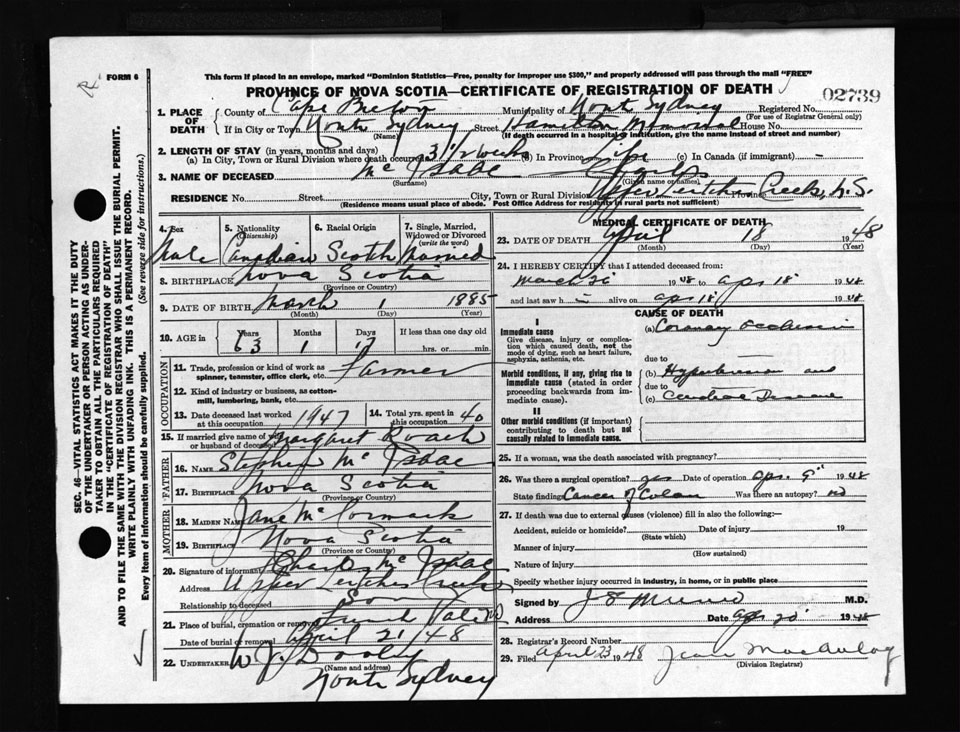 FORM 6
This form if placed in an envelope, marked "Dominion Statistics—Free, penalty for improper use $300," and properly addressed will pass through the mail "FREE"
PROVINCE OF NOVA SCOTIA—CERTIFICATE OF REGISTRATION OF DEATH
02739
1. PLACE OF DEATH
County of Cape Breton Municipality of North Sydney Registered No.
(For use of Registrar General only)
If in City or Town North Sydney Street Hamilton Memorial House No.
(Name) (If death occurred in a hospital or institution, give the name instead of street and number)
2. LENGTH OF STAY (in years, months and days)
(a) In City, Town or Rural Division where death occurred 3 1/2 weeks (b) In Province Life (c) In Canada (if immigrant) —
3. NAME OF DECEASED Mc Isaac
(Surname) (Given name or names)
RESIDENCE No. Street City, Town or Rural Division Upper Leitches Creek, N.S. Province
(Residence means usual place of abode. Post Office Address for residents in rural parts not sufficient)
4. Sex
Male
5. Nationality
(Citizenship)
Canadian
6. Racial Origin
Scotch
7. Single, Married, Widowed or Divorced
(write the word)
Married
8. BIRTHPLACE Nova Scotia
(Province or Country)
9. DATE OF BIRTH March 1 1885
(Month) (Day) (Year)
10. AGE in
Years Months Days If less than one day old
63 1 17 hrs. or min.
OCCUPATION
11. Trade, profession or kind of work as spinner, teamster, office clerk, etc. Farmer
12. Kind of industry or business, as cotton-mill, lumbering, bank, etc.
13. Date deceased last worked at this occupation 1947
14. Total yrs. spent in this occupation 40
15. If married give name of wife or husband of deceased Margaret Roach
FATHER
16. NAME Stephen Mc Isaac
17. BIRTHPLACE Nova Scotia
(Province or Country)
MOTHER
18. MAIDEN NAME Jane McCormack
19. BIRTHPLACE Nova Scotia
(Province or Country)
20. Signature of informant Mc Isaac
Address Upper Leitches Creek
Relationship to deceased Son
21. Place of burial, cremation or removal French Vale
Date of burial or removal April 21/48
22. UNDERTAKER W.J. Dooley
(Name and address)
North Sydney
MEDICAL CERTIFICATE OF DEATH
23. DATE OF DEATH April 18 1948
(Month) (Day) (Year)
24. I HEREBY CERTIFY that I attended deceased from:
March 26 1948 to apr 18 1948
and last saw h alive on apr 18 1948
CAUSE OF DEATH
I
Immediate cause
Give disease, injury or complication which caused death, not the mode of dying, such as heart failure, asphyxia, asthenia, etc.
(a) Coronary Occlusion
due to
Morbid conditions, if any, giving rise to immediate cause (stated in order proceeding backwards from immediate cause).
(b) Hypertension and
due to
(c) Disease
II
Other morbid conditions (if important) contributing to death but not causally related to immediate cause.
25. If a woman, was the death associated with pregnancy?
26. Was there a surgical operation? yes Date of operation apr. 9" 1948
State finding Cancer of Colon Was there an autopsy? no
27. If death was due to external causes (violence) fill in also the following:—
Accident, suicide or homicide? Date of injury 19
(State which)
Manner of injury
(How sustained)
Nature of injury
Specify whether injury occurred in industry, in home, or in public place
Signed by M.D.
Address Date apr 20 1948
28. Registrar's Record Number
29. Filed April 23 1948 Jean MacAulay
(Division Registrar)
SEC. 46—VITAL STATISTICS ACT MAKES IT THE DUTY
OF THE UNDERTAKER OR PERSON ACTING AS UNDER-
TAKER TO OBTAIN ALL THE PARTICULARS REQUIRED
IN THE "CERTIFICATE OF REGISTRATION OF DEATH"
AND TO FILE THE SAME WITH THE DIVISION REGISTRAR WHO SHALL ISSUE THE BURIAL PERMIT.
WRITE PLAINLY WITH UNFADING INK. THIS IS A PERMANENT RECORD.
Every item of information should be carefully supplied. (See reverse side for instructions.)